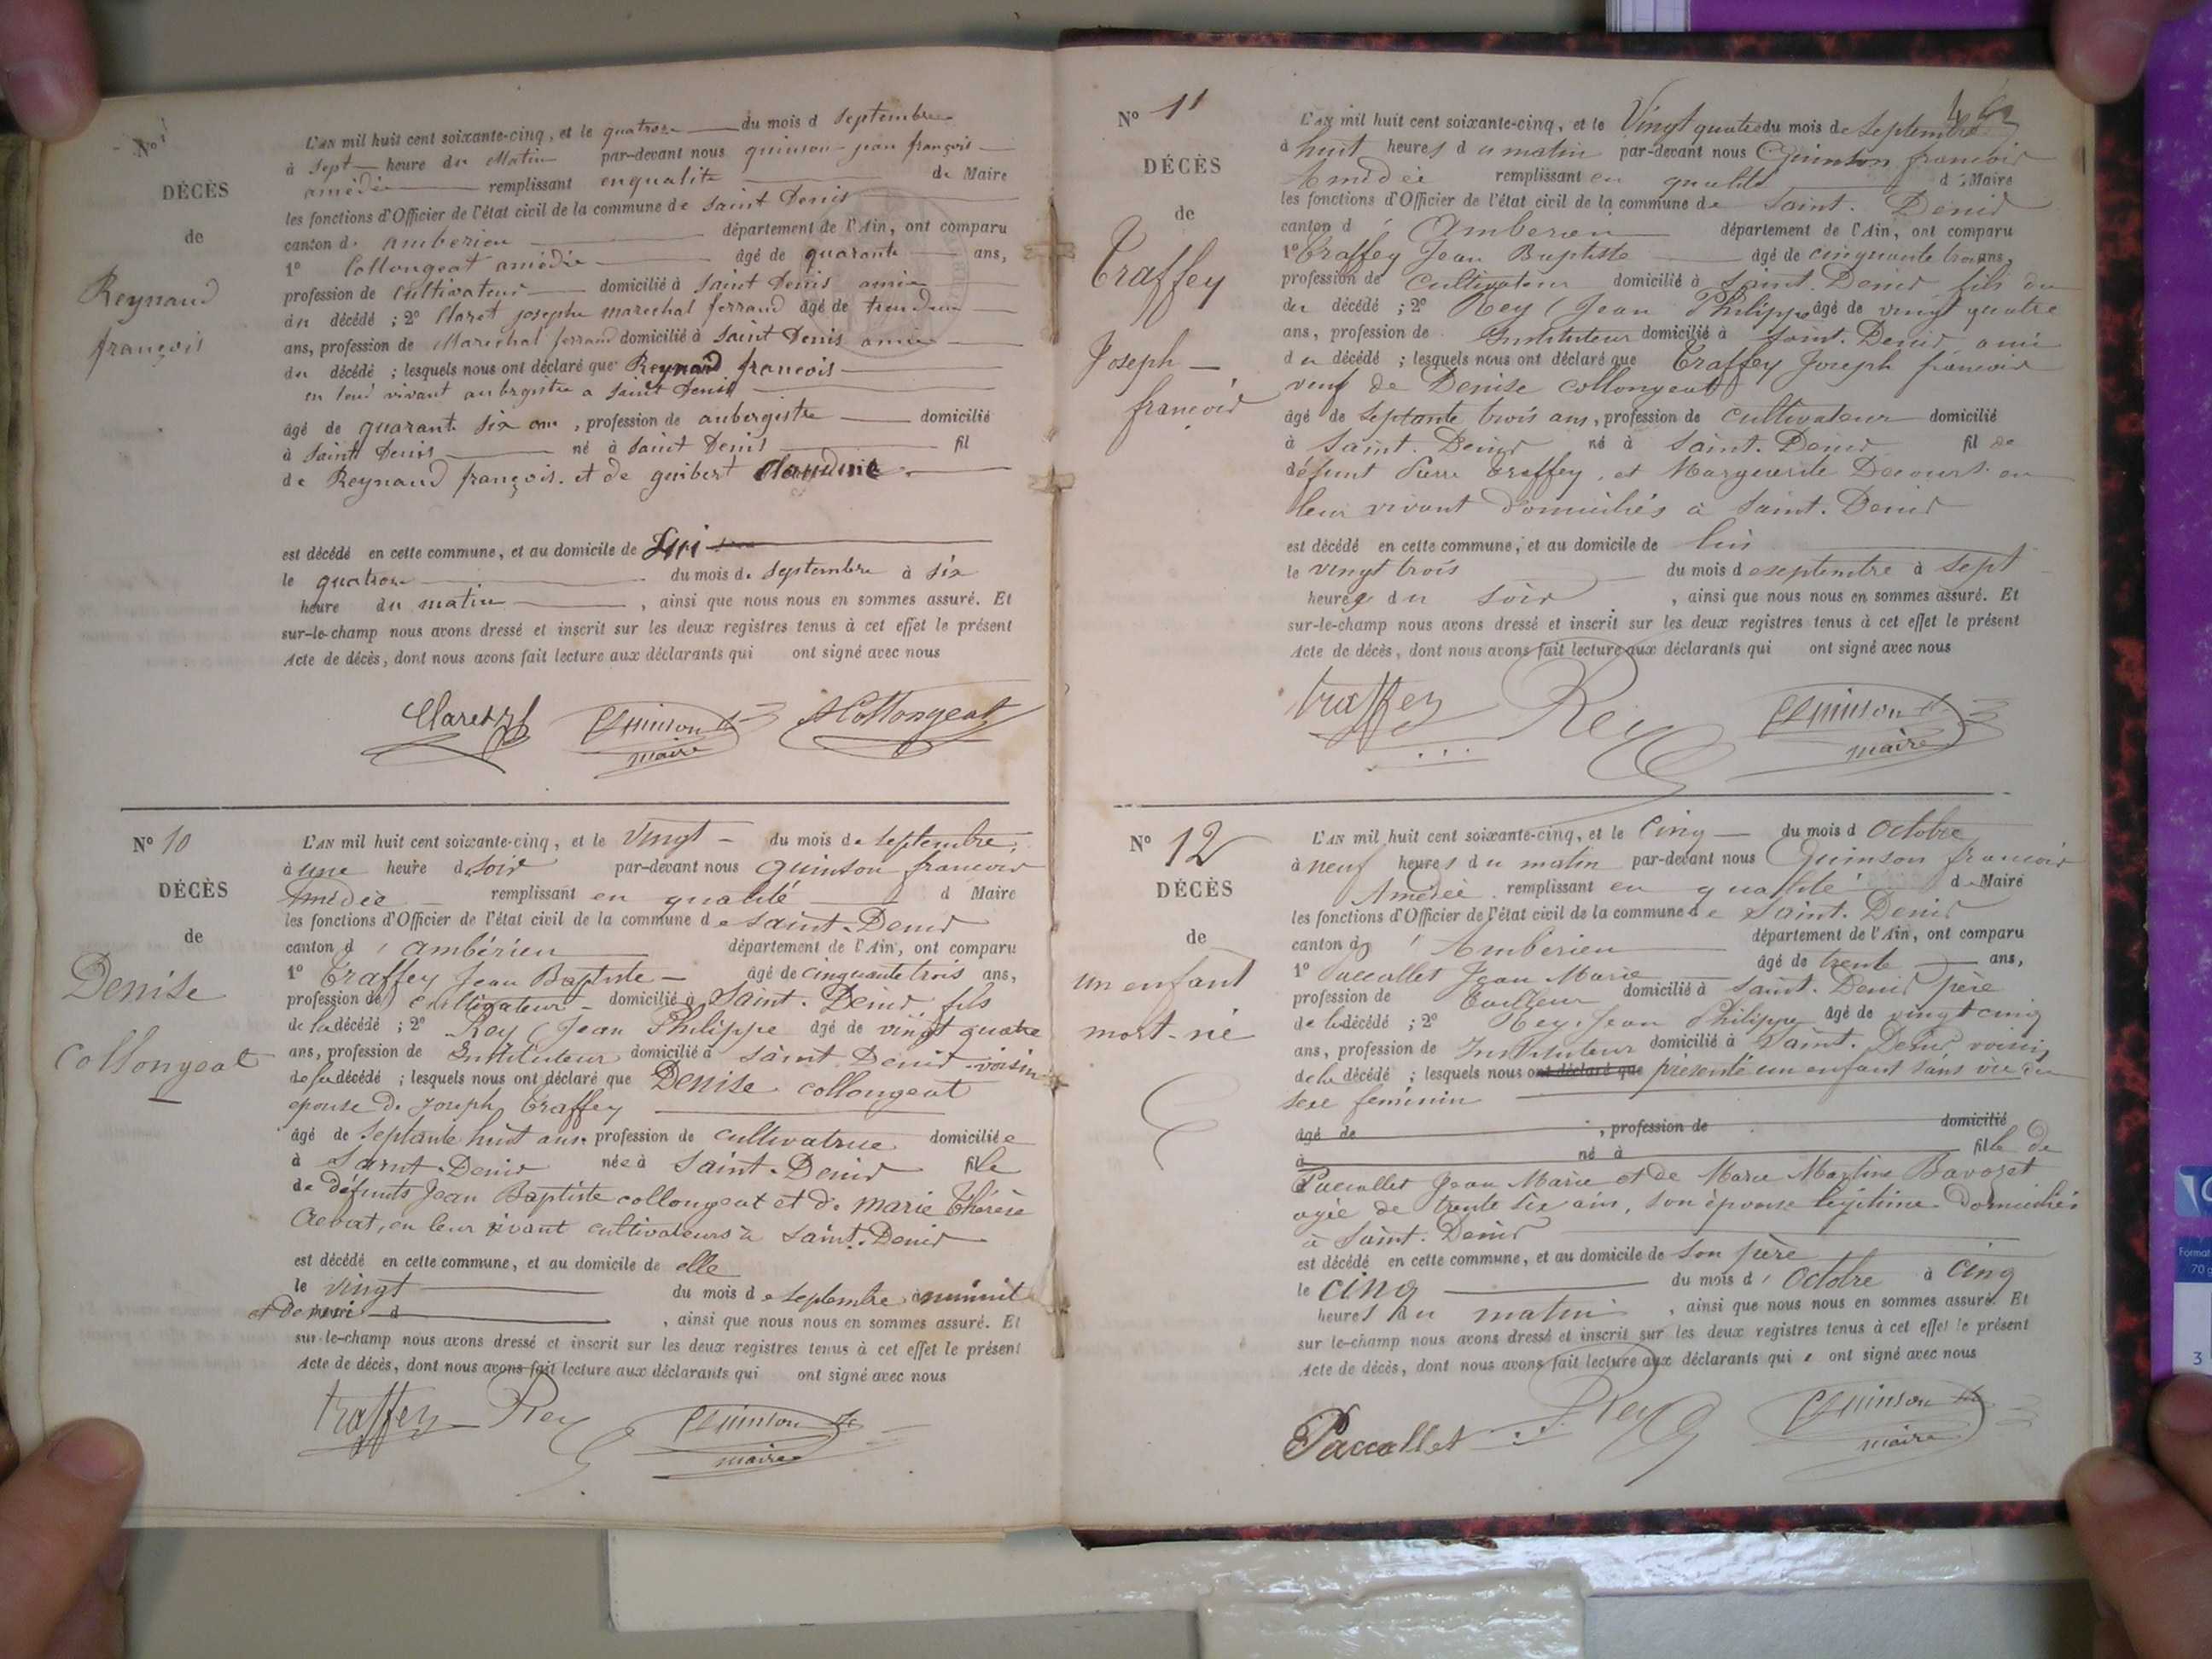 No
DÉCÈS
de
Reynaud
françois
L'AN mil huit cent soixante-cinq, et le quatorze du mois d Septembre
à Sept heure du Matin par-devant nous quinson jean françois
amédée remplissant enqualité de Maire
les fonctions d'Officier de l'état civil de la commune de Saint Denis
canton d. amberieu département de l'Ain, ont comparu
1º Collongeat amédée âgé de quarante ans,
profession de Cultivateur domicilié à Saint Denis amie
du décédé ; 2º Claret josephe marechal ferrand âgé de
ans, profession de Marechal ferrand domicilié à Saint Denis amie
du décédé ; lesquels nous ont déclaré que Reynaud francois
en vivant aubrgistre a Saint Denis
âgé de quarante six ans , profession de aubergistre domicilié
à Saint Denis né à Saint Denis fil
de Reynaud françois. et de guibert Claudine
est décédé en cette commune, et au domicile de Lui
le quatorze du mois d. Septembre à six
heure du matin , ainsi que nous nous en sommes assuré. Et
sur-le-champ nous avons dressé et inscrit sur les deux registres tenus à cet effet le présent
Acte de décès, dont nous avons fait lecture aux déclarants qui ont signé avec nous
Claret Quinson A Collongeat
maire
No 10
DÉCÈS
de
Denise
Collongeat
L'AN mil huit cent soixante-cinq, et le Vingt du mois de Septembre
à une heure d soir par-devant nous quinson francois
Amédée remplissant en qualité d Maire
les fonctions d'Officier de l'état civil de la commune de Saint-Denis
canton d' ambérieu département de l'Ain, ont comparu
1º Traffey Jean Baptiste âgé de cinquante trois ans,
profession de cultivateur domicilié à Saint. Denis fils
de la décédé ; 2º Rey (Jean Philippe âgé de vingt quatre
ans, profession de Instituteur domicilié à Saint Denis voisin
de la décédé ; lesquels nous ont déclaré que Denise collongeat
épouse de Joseph Traffey
âgé de septante huit ans profession de cultivatrice domiciliée
à Saint-Denis née à Saint-Denis fille
de défunts Jean Baptiste collongeat et de marie Thérèse
en leur vivant cultivateurs à Saint-Denis
est décédé en cette commune, et au domicile de elle
le vingt du mois de septembre à minuit
et demi d , ainsi que nous nous en sommes assuré. Et
sur-le-champ nous avons dressé et inscrit sur les deux registres tenus à cet effet le présent
Acte de décès, dont nous avons fait lecture aux déclarants qui ont signé avec nous
traffey Rey Quinson
maire
No 11
DÉCÈS
de
Traffey
Joseph
francois
L'AN mil huit cent soixante-cinq, et le Vingt quatre du mois de Septembre
à huit heures du matin par-devant nous Quinson francois
Amédée remplissant en qualité d Maire
les fonctions d'Officier de l'état civil de la commune de Saint. Denis
canton d' Amberieu département de l'Ain, ont comparu
1º Traffey Jean Baptiste âgé de cinquante trois ans,
profession de Cultivateur domicilié à Saint. Denis fils du
du décédé ; 2º Rey (Jean Philippe âgé de vingt quatre
ans, profession de Instituteur domicilié à Saint. Denis ami
du décédé ; lesquels nous ont déclaré que Traffey Joseph francois
veuf de Denise collongeat
âgé de septante trois ans, profession de cultivateur domicilié
à Saint. Denis né à Saint. Denis fil de
défunt Pierre Traffey, et Marguerite en
leur vivant domiciliés à Saint. Denis
est décédé en cette commune, et au domicile de lui
le vingt trois du mois de septembre à sept
heures du soir , ainsi que nous nous en sommes assuré. Et
sur-le-champ nous avons dressé et inscrit sur les deux registres tenus à cet effet le présent
Acte de décès, dont nous avons fait lecture aux déclarants qui ont signé avec nous
traffey Rey Quinson
maire
No 12
DÉCÈS
de
un enfant
mort-né
L'AN mil huit cent soixante-cinq, et le Cinq du mois d Octobre
à neuf heures du matin par-devant nous Quinson francois
Amédée remplissant en qualité de Maire
les fonctions d'Officier de l'état civil de la commune de Saint. Denis
canton d' Ambérieu département de l'Ain, ont comparu
1º Paccallet Jean Marie âgé de trente ans,
profession de Tailleur domicilié à Saint. Denis père
de la décédé ; 2º Rey, Jean Philippe âgé de vingt cinq
ans, profession de Instituteur domicilié à Saint. Denis voisin
de la décédé ; lesquels nous ont déclaré que présenté un enfant sans vie du
sexe feminin
âgé de , profession de domicilié
à né à fille de
Paccallet Jean Marie et de Marie Bavozet
agée de trente six ans, son épouse légitime domiciliés
à Saint. Denis
est décédé en cette commune, et au domicile de son père
le cinq du mois d' Octobre à cinq
heures du matin , ainsi que nous nous en sommes assuré. Et
sur le-champ nous avons dressé et inscrit sur les deux registres tenus à cet effet le présent
Acte de décès, dont nous avons fait lecture aux déclarants qui ont signé avec nous
Paccallet Rey Quinson
maire
Format
70 g
3